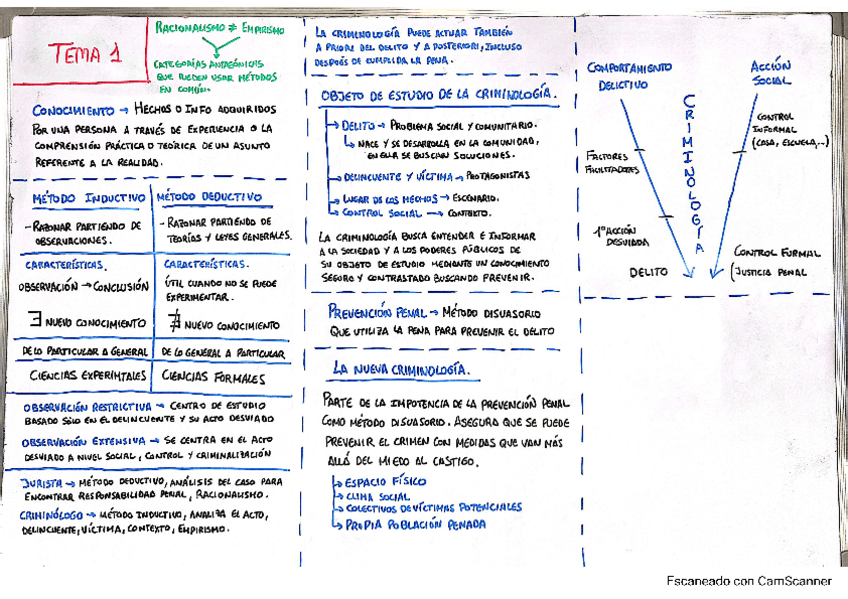 TEMA 1
RACIONALISMO ≠ EMPIRISMO
CATEGORÍAS ANTAGÓNICAS
QUE PUEDEN USAR MÉTODOS
EN COMÚN.
CONOCIMIENTO → HECHOS O INFO ADQUIRIDOS
POR UNA PERSONA A TRAVÉS DE EXPERIENCIA O LA
COMPRENSIÓN PRÁCTICA O TEÓRICA DE UN ASUNTO
REFERENTE A LA REALIDAD.
MÉTODO INDUCTIVO
- RAZONAR PARTIENDO DE
OBSERVACIONES.
CARACTERÍSTICAS.
OBSERVACIÓN → CONCLUSIÓN
∃ NUEVO CONOCIMIENTO
DE LO PARTICULAR A GENERAL
CIENCIAS EXPERIMTALES
MÉTODO DEDUCTIVO
- RAZONAR PARTIENDO DE
TEORÍAS Y LEYES GENERALES.
CARACTERÍSTICAS.
ÚTIL CUANDO NO SE PUEDE
EXPERIMENTAR.
∄ NUEVO CONOCIMIENTO
DE LO GENERAL A PARTICULAR
CIENCIAS FORMALES
OBSERVACIÓN RESTRICTIVA → CENTRO DE ESTUDIO
BASADO SÓLO EN EL DELINCUENTE Y SU ACTO DESVIADO
OBSERVACIÓN EXTENSIVA → SE CENTRA EN EL ACTO
DESVIADO A NIVEL SOCIAL, CONTROL Y CRIMINALIZACIÓN
JURISTA → MÉTODO DEDUCTIVO, ANÁLISIS DEL CASO PARA
ENCONTRAR RESPONSABILIDAD PENAL, RACIONALISMO.
CRIMINÓLOGO → MÉTODO INDUCTIVO, ANALIZA EL ACTO,
DELINCUENTE, VÍCTIMA, CONTEXTO, EMPIRISMO.
LA CRIMINOLOGÍA PUEDE ACTUAR TAMBIÉN
A PRIORI DEL DELITO Y A POSTERIORI, INCLUSO
DESPUÉS DE CUMPLIDA LA PENA.
OBJETO DE ESTUDIO DE LA CRIMINOLOGÍA.
DELITO → PROBLEMA SOCIAL Y COMUNITARIO.
NACE Y SE DESARROLLA EN LA COMUNIDAD,
EN ELLA SE BUSCAN SOLUCIONES.
DELINCUENTE Y VÍCTIMA → PROTAGONISTAS
LUGAR DE LOS HECHOS → ESCENARIO.
CONTROL SOCIAL → CONTEXTO.
LA CRIMINOLOGÍA BUSCA ENTENDER E INFORMAR
A LA SOCIEDAD Y A LOS PODERES PÚBLICOS DE
SU OBJETO DE ESTUDIO MEDIANTE UN CONOCIMIENTO
SEGURO Y CONTRASTADO BUSCANDO PREVENIR.
PREVENCIÓN PENAL → MÉTODO DISUASORIO
QUE UTILIZA LA PENA PARA PREVENIR EL DELITO
LA NUEVA CRIMINOLOGÍA.
PARTE DE LA IMPOTENCIA DE LA PREVENCIÓN PENAL
COMO MÉTODO DISUASORIO. ASEGURA QUE SE PUEDE
PREVENIR EL CRIMEN CON MEDIDAS QUE VAN MÁS
ALLÁ DEL MIEDO AL CASTIGO.
ESPACIO FÍSICO
CLIMA SOCIAL
COLECTIVOS DE VÍCTIMAS POTENCIALES
PROPIA POBLACIÓN PENADA
COMPORTAMIENTO
DELICTIVO
ACCIÓN
SOCIAL
CRIMINOLOGÍA
CONTROL
INFORMAL
(CASA, ESCUELA,...)
FACTORES
FACILITADORES
1ª ACCIÓN
DESVIADA
DELITO
CONTROL FORMAL
(JUSTICIA PENAL
Escaneado con CamScanner